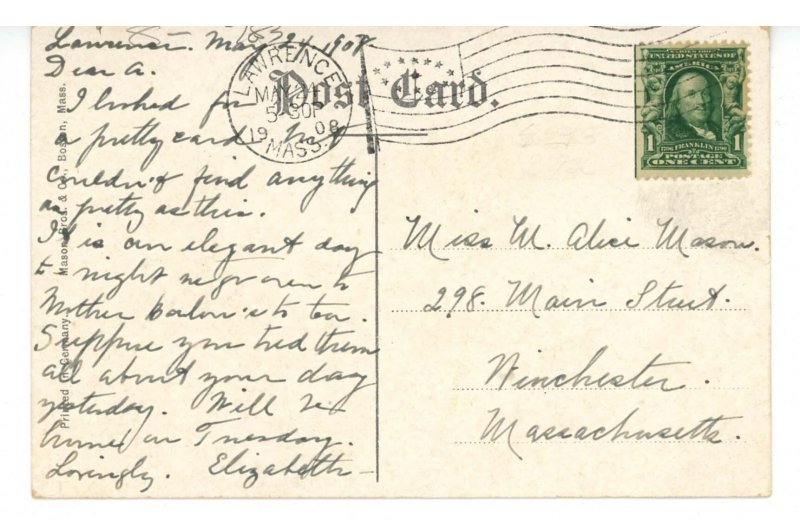 Lawrence. May 24 1908
Dear A.
I looked for
a pretty card but
couldn't find anything
as pretty as this.
It is an elegant day
to night we go over to
Mother to tea.
Suppose you told them
all about your day
yesterday. Will be
home on Tuesday.
Lovingly. Elizabeth
Printed in Germany. Mason Bros. & Co., Boston, Mass.
LAWRENCE
MAY 24
5 30P
1908
MASS.
Post Card.
UNITED STATES OF
AMERICA
1 1706 FRANKLIN 1790 1
POSTAGE
ONE CENT
Miss M. Alice Mason.
298. Main Street.
Winchester.
Massachusetts.